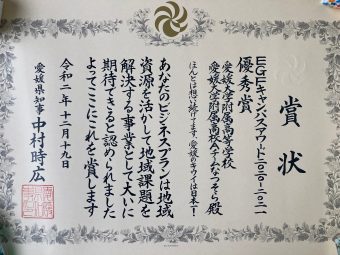 賞状
EGFキャンパスアワード二〇二〇-二〇二一
優秀賞
愛媛大学附属高等学校
愛媛大学附属高校チームなつそら殿
ほんとは想い続けてます、愛媛のキウイは日本一!
あなたのビジネスプランは地域
資源を活かして地域課題を
解決する事業として大いに
期待できると認められました
よってここにこれを賞します
令和二年十二月十九日
愛媛県知事 中村時広